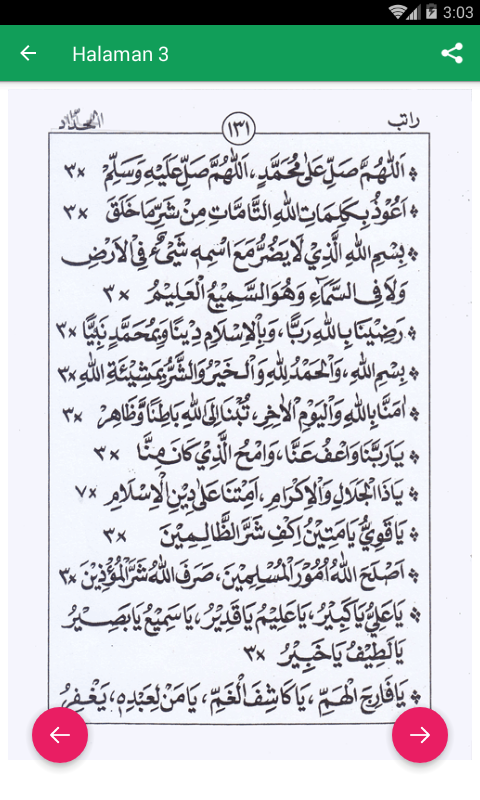 3:03
Halaman 3
راتب ١٣١ الحدّاد
اَللّٰهُمَّ صَلِّ عَلٰى مُحَمَّدٍ، اَللّٰهُمَّ صَلِّ عَلَيْهِ وَسَلِّمْ ×٣
اَعُوْذُ بِكَلِمَاتِ اللهِ التَّامَّاتِ مِنْ شَرِّ مَا خَلَقَ ×٣
بِسْمِ اللهِ الَّذِيْ لَا يَضُرُّ مَعَ اسْمِهٖ شَيْءٌ فِى الْاَرْضِ
وَلَا فِى السَّمَآءِ وَهُوَ السَّمِيْعُ الْعَلِيْمُ ×٣
رَضِيْنَا بِاللهِ رَبًّا، وَبِالْاِسْلَامِ دِيْنًا وَبِمُحَمَّدٍ نَبِيًّا ×٣
بِسْمِ اللهِ، وَالْحَمْدُ لِلّٰهِ وَالْخَيْرُ وَالشَّرُّ بِمَشِيْئَةِ اللهِ ×٣
اٰمَنَّا بِاللهِ وَالْيَوْمِ الْاٰخِرِ، تُبْنَا اِلَى اللهِ بَاطِنًا وَّظَاهِرْ ×٣
يَا رَبَّنَا وَاعْفُ عَنَّا، وَامْحُ الَّذِيْ كَانَ مِنَّا ×٣
يَا ذَا الْجَلَالِ وَالْاِكْرَامِ، اَمِتْنَا عَلٰى دِيْنِ الْاِسْلَامِ ×٧
يَا قَوِيُّ يَا مَتِيْنُ اِكْفِ شَرَّ الظَّالِمِيْنَ ×٣
اَصْلَحَ اللهُ اُمُوْرَ الْمُسْلِمِيْنَ، صَرَفَ اللهُ شَرَّ الْمُؤْذِيْنَ ×٣
يَا عَلِيُّ يَا كَبِيْرُ، يَا عَلِيْمُ يَا قَدِيْرُ، يَا سَمِيْعُ يَا بَصِيْرُ
يَا لَطِيْفُ يَا خَبِيْرُ ×٣
يَا فَارِجَ الْهَمِّ، يَا كَاشِفَ الْغَمِّ، يَا مَنْ لِعَبْدِهٖ، يَغْفِرُ